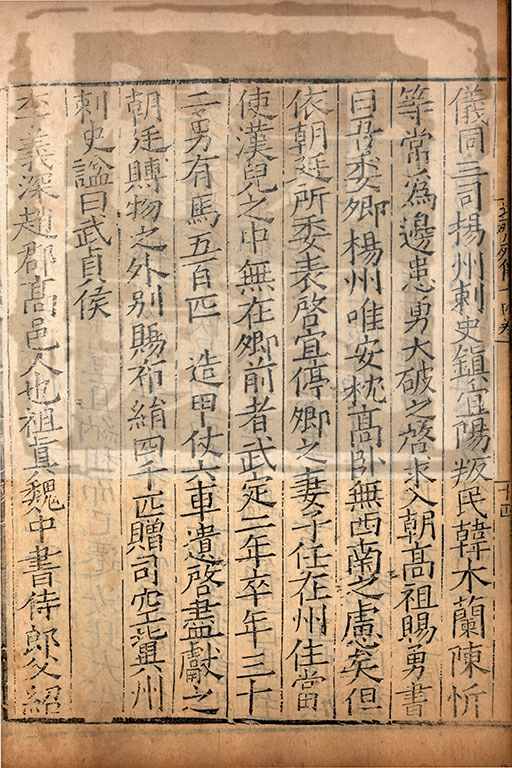 儀同三司揚州刺史鎮宜陽叛民韓木蘭陳忻
等常爲邊患勇大破之啓求入朝高祖賜勇書
曰吾委卿楊州唯安枕高卧無西南之慮矣但
依朝廷所委表啓宜停卿之妻子任在州住當
使漢兒之中無在卿前者武定二年卒年三十
二勇有馬五百匹 造甲仗六車遺啓盡獻之
朝廷賻物之外別賜布絹四千匹贈司空冀州
刺史謚曰武貞侯
李義深趙郡高邑人也祖真魏中書侍郎父紹
十四